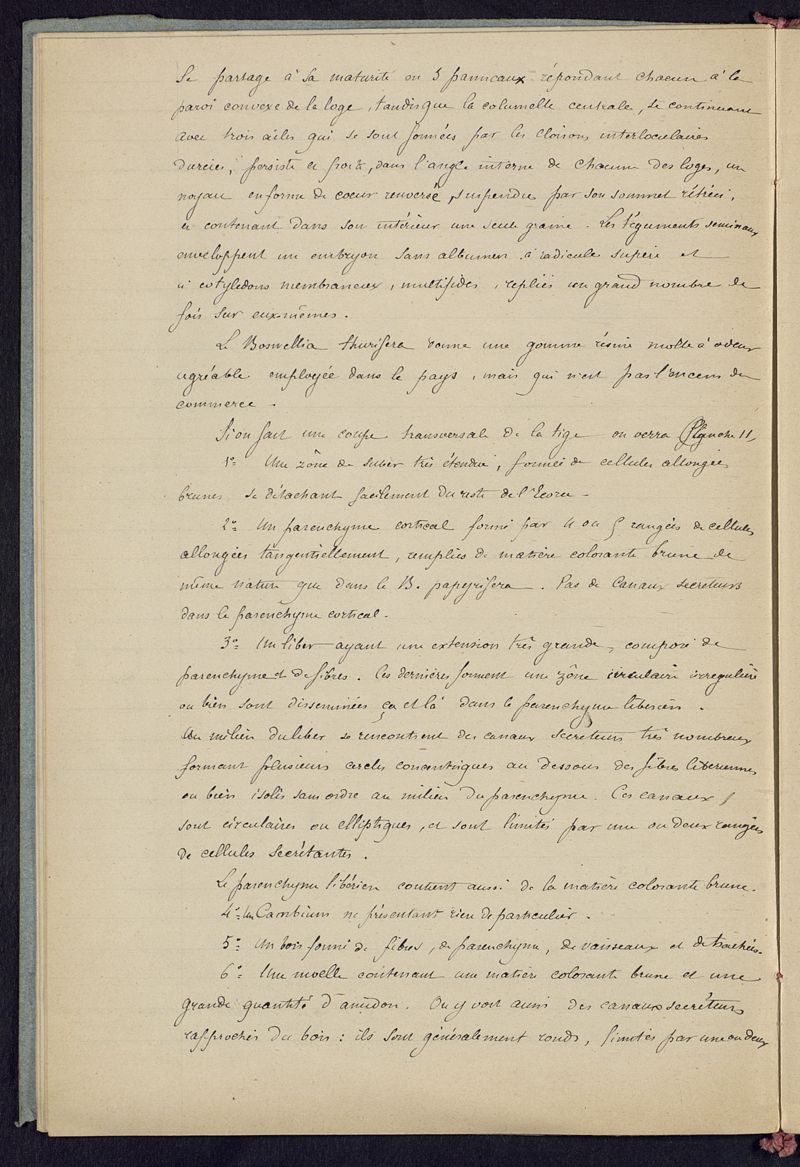 se partage à sa maturité en 3 panneaux répondant chacun à la
paroi convexe de la loge, tandis que la columelle centrale, se continuant
avec trois ailes qui se sont formées par les cloisons interloculaires
durcies, persiste et porte, dans l'angle interne de chacune des loges, un
noyau en forme de coeur renversé, suspendu par son sommet rétréci,
et contenant dans son intérieur une seule graine. Les téguments séminaux
enveloppent un embryon sans albumen à radicule supère et
à cotylédons membraneux, multifides, repliés un grand nombre de
fois sur eux-mêmes.
Le Boswellia thurifera donne une gomme résine molle à odeur
agréable employée dans le pays, mais qui n'est pas l'encens du
commerce.
Si on fait une coupe transversale de la tige on verra (Planche 11)
1º Une zône de suber très étendue, formée de cellules allongées
brunes se détachant facilement du reste de l'Ecorce
2º Un parenchyme cortical formé par 4 ou 5 rangées de cellules
allongées tangentiellement, remplies de matière colorante brune de
même nature que dans le B. papyrifera. Pas de canaux secréteurs
dans le parenchyme cortical.
3º Un liber ayant une extension très grande, composé de
parenchyme et de fibres. Ces dernières forment une zône circulaire irrégulière
ou bien sont disseminées çà et là dans le parenchyme liberien.
Au milieu du liber se rencontrent des canaux secréteurs très nombreux
formant plusieurs cercles concentriques au dessous des fibres liberiennes
ou bien isolés sans ordre au milieu du parenchyme. Ces canaux
sont circulaires ou elliptiques, et sont limités par une ou deux rangées
de cellules secrétantes.
Le parenchyme libérien contient aussi de la matière colorante brune.
4º Un Cambium ne présentant rien de particulier.
5º Un bois formé de fibres, de parenchyme, de vaisseaux et de trachées.
6º Une moelle contenant une matière colorante brune et une
grande quantité d'amidon. On y voit aussi des canaux secréteurs
rapprochés du bois : ils sont généralement ronds, limités par une ou deux